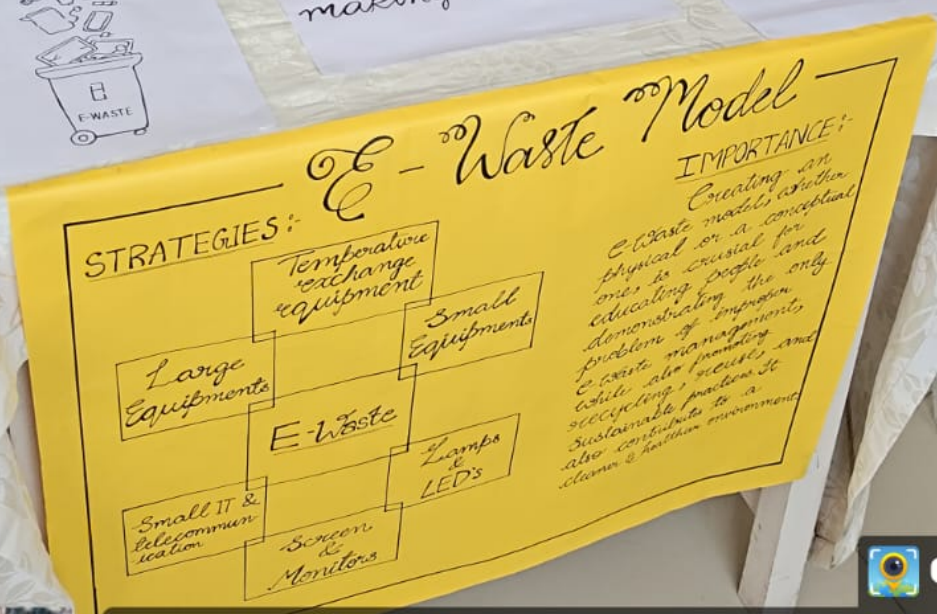 making
E-WASTE
E-Waste Model
STRATEGIES:-
Temperature
exchange
equipment
Small
Equipments
Large
Equipments
E-Waste
Lamps
&
LED's
Small IT &
telecommun
ication
Screen
&
Monitors
IMPORTANCE:-
Creating an
E-Waste model, whether
physical or a conceptual
one, is crusial for
educating people and
demonstrating the only
problem of improper
E-waste management,
while also promoting
recycling, reuse, and
sustainable practices. It
also contributes to a
cleaner & healthier environment